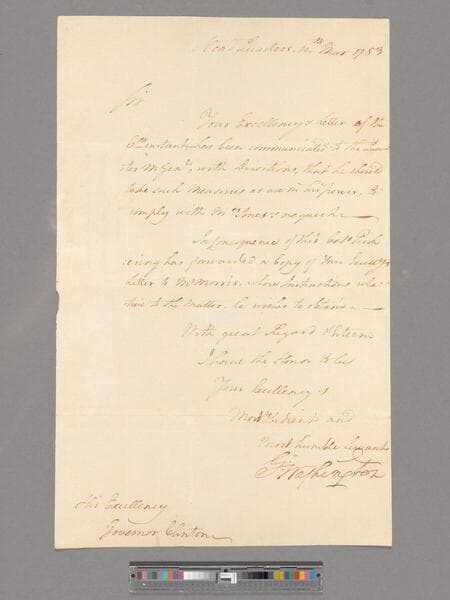 Head Quarters 10th Mar 1783
Sir
Your Excellencys Letter of the
6th instant has been communicated to the Quar
ter Mr Genl, with Directions, that he should
take such Measures as are in his power, to
comply with Mr Jones's request.
In consequence of this Colo Pick
ering has forwarded a Copy of Your Excelly's
Letter to Mr Morris, whose Instructions rela
tive to the Matter, he wishes to obtain.
With great Regard & Esteem
I have the Honor to be
Your Excellency's
Most Obedient and
Most humble Servant
Go Washington
His Excellency
Governor Clinton